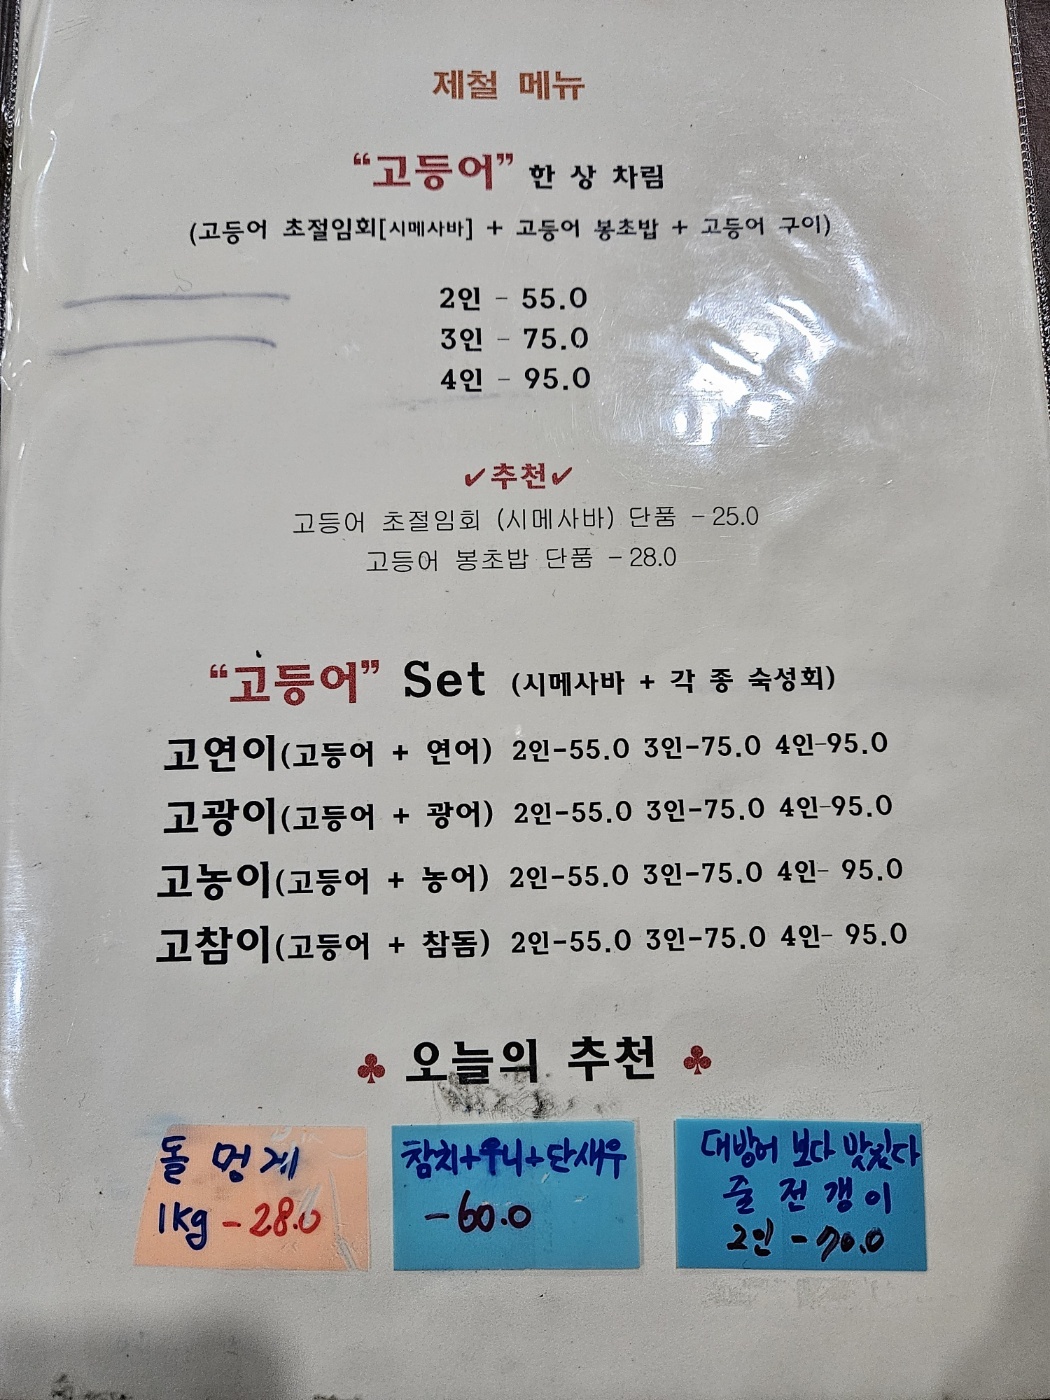 제철 메뉴
“고등어” 한 상 차림
(고등어 초절임회[시메사바] + 고등어 봉초밥 + 고등어 구이)
2인 - 55.0
3인 - 75.0
4인 - 95.0
✓추천✓
고등어 초절임회 (시메사바) 단품 - 25.0
고등어 봉초밥 단품 - 28.0
“고등어” Set (시메사바 + 각 종 숙성회)
고연이(고등어 + 연어) 2인-55.0 3인-75.0 4인-95.0
고광이(고등어 + 광어) 2인-55.0 3인-75.0 4인-95.0
고농이(고등어 + 농어) 2인-55.0 3인-75.0 4인- 95.0
고참이(고등어 + 참돔) 2인-55.0 3인-75.0 4인- 95.0
♣ 오늘의 추천 ♣
돌 멍게
1kg - 28.0
참치+우니+단새우
- 60.0
대방어 보다 맛있다
줄 전갱이
2인 - 70.0